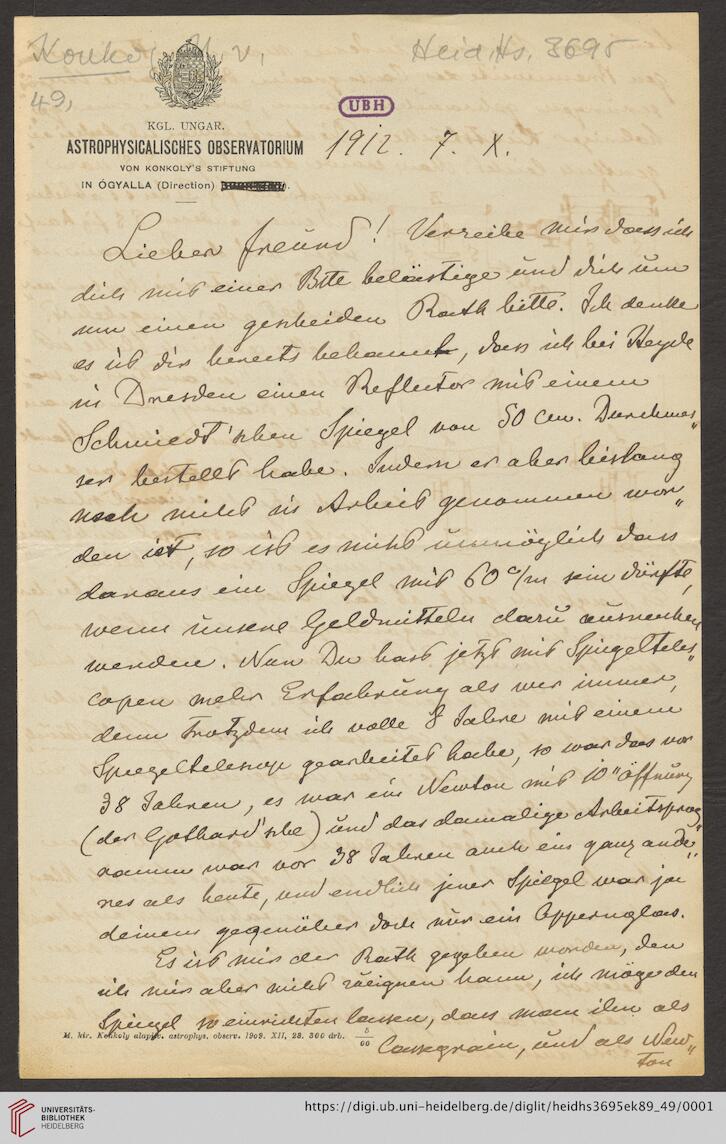 Konkoly, N. v.
Heid. Hs. 3695
49,
UBH
KGL. UNGAR.
ASTROPHYSICALISCHES OBSERVATORIUM
VON KONKOLY'S STIFTUNG
IN ÓGYALLA (Direction)
1912. 7. X.
Lieber Freund! Verzeihe mir dass ich
dich mit einer Btte belästige und dich um
nun einen gescheiden Rath bitte. Ich denke
es ist dir bereits bekannt, dass ich bei Heyde
in Dresden einen Reflector mit einem
Schmiedt'schen Spiegel von 50 cm. Durchmes„
ser bestellt habe. Indem er aber bislang
noch nicht in Arbeit genommen wor„
den ist, so ist es nicht unmöglich dass
daraus ein Spiegel mit 60 c/m sein dürfte,
wenn unsere Geldmitteln dazu ausreichen
werden. Nun Du hast jetzt mit Spiegelteles„
copen mehr Erfahrung als wer immer,
denn trotzdem ich volle 8 Jahre mit einem
Spiegeltelescop gearbeitet habe, so war das vor
38 Jahren, es war ein Newton mit 10" Öffnung
(der Gothard'sche) und das damalige Arbeitsprog„
ramm war vor 38 Jahren auch ein ganz ande„
res als heute, und endlich jener Spiegel war ja
deinem gegenüber doch nur ein Opernglas.
Es ist mir der Rath gegeben worden, den
ich mir aber nicht zueignen kann, ich möge den
Spiegel so einrichten lassen, dass man ihn als
Cassegrain, und als New„
ton
M. kir. Konkoly alapítv. astrophys. observ. 1909. XII, 28. 300 drb. 5/00
UNIVERSITÄTS-
BIBLIOTHEK
HEIDELBERG
https://digi.ub.uni-heidelberg.de/diglit/heidhs3695ek89_49/0001